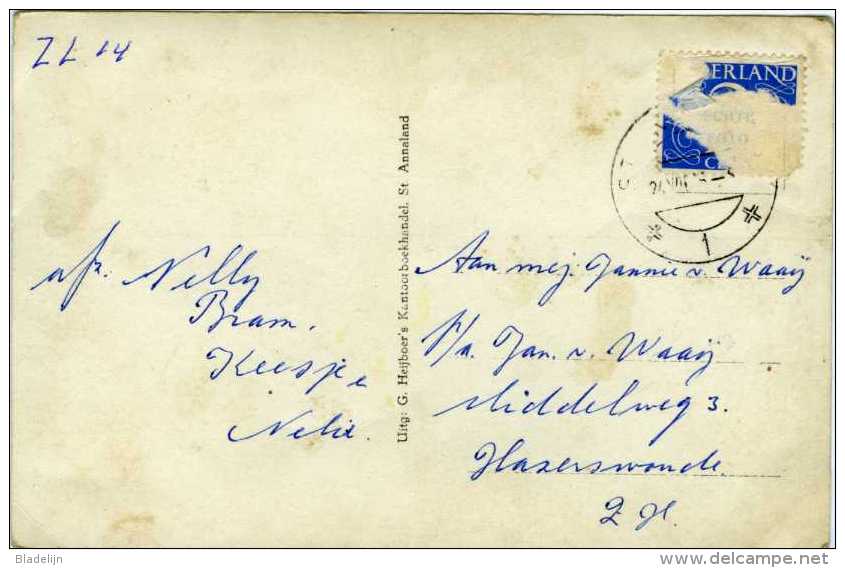 ZL 14
NEDERLAND
1
afz. Nelly
Bram.
Keesje
Nelie.
Uitg: G. Heijboer's Kantoorboekhandel. St Annaland
Aan mej. Jannie v. Waaij
P/a. Jan. v. Waaij
Middelweg 3.
Hazerswoude
Z.H.
Bladelijn
www.delcampe.net